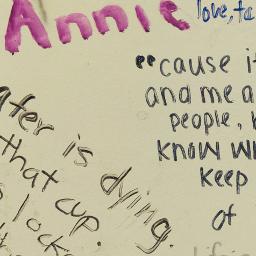 Annie
love, ta
"cause i
and me a
people,
know w
keep
of
ater is dying.
that cup.
lock